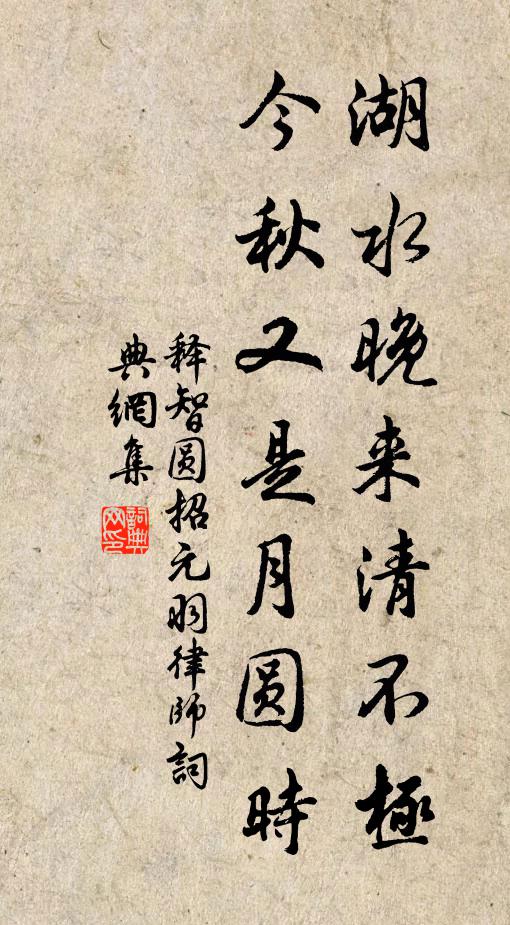 湖水晚来清不極
今秋又是月圆時
释智圆招元羽律師詞
典網集
詞典
网印